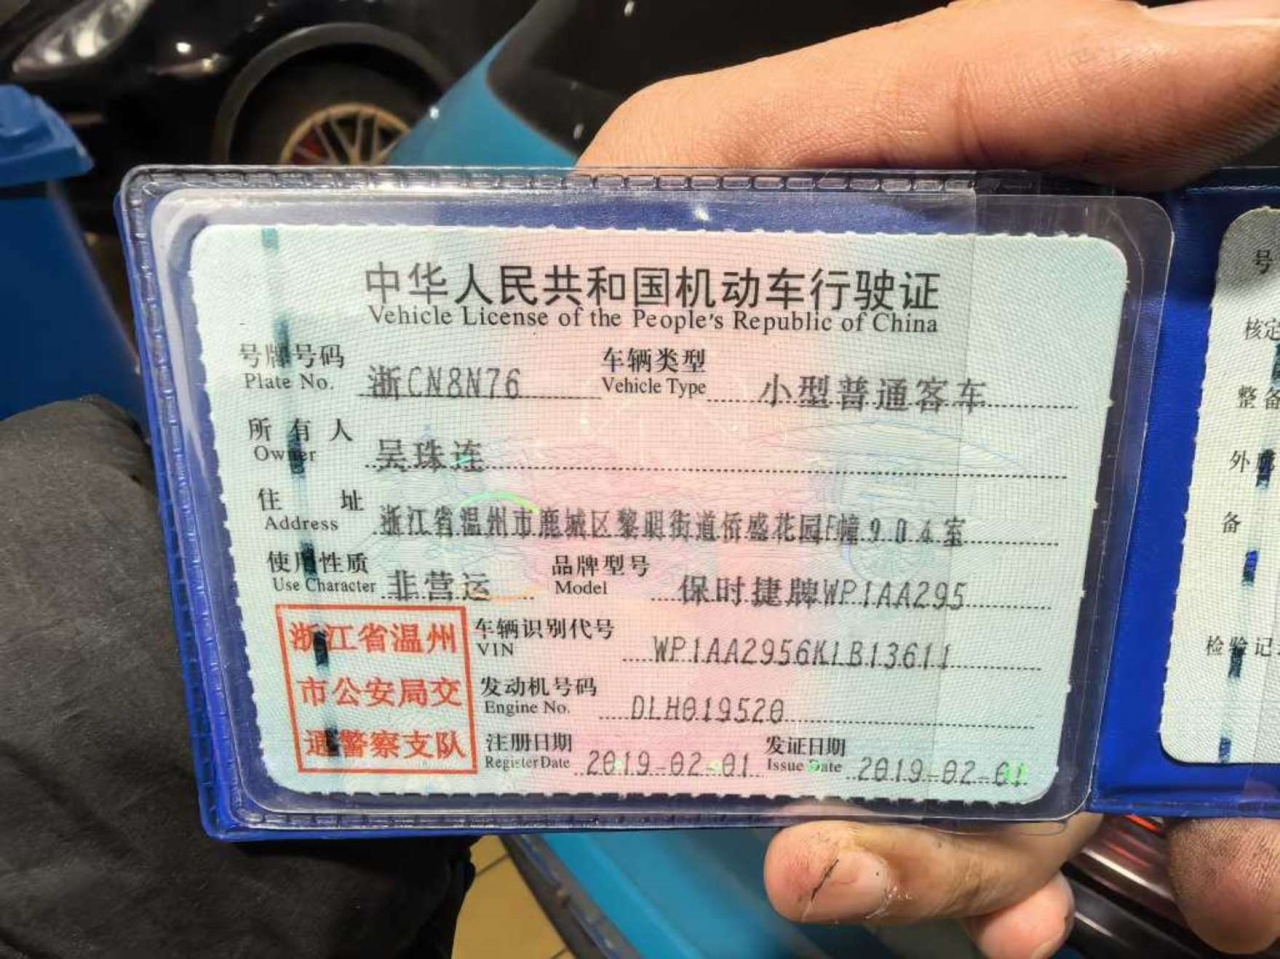 中华人民共和国机动车行驶证
Vehicle License of the People's Republic of China
号牌号码 浙CN8N76 车辆类型 小型普通客车
Plate No. Vehicle Type
所有人 吴珠连
Owner
住址 浙江省温州市鹿城区黎明街道侨盛花园F幢904室
Address
使用性质 非营运 品牌型号 保时捷牌WP1AA295
Use Character Model
浙江省温州
市公安局交
通警察支队
车辆识别代号 WP1AA2956KLB13611
VIN
发动机号码 DLH019520
Engine No.
注册日期 2019-02-01 发证日期 2019-02-01
Register Date Issue Date
号
核定
整备
外
备
检验记